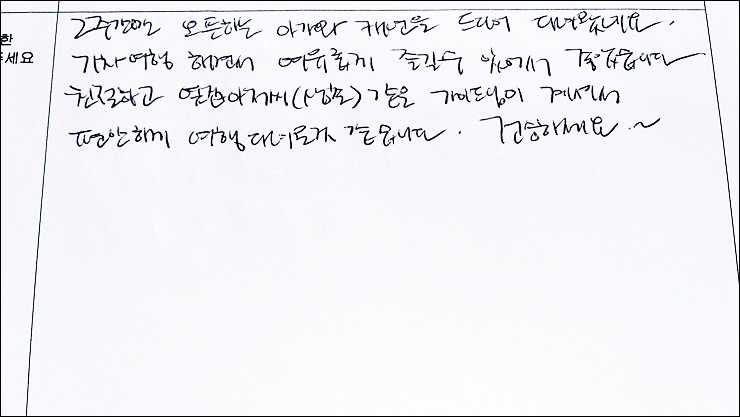 2주간만 오픈하는 아가와 캐년을 드디어 다녀왔네요.
기차여행 하면서 여유롭게 즐길수 있어서 좋았습니다
친절하고 옆집아저씨(삼촌) 같은 가이드님이 계셔서
편안하게 여행다녀온거 같습니다. 건승하세요~
한
세요